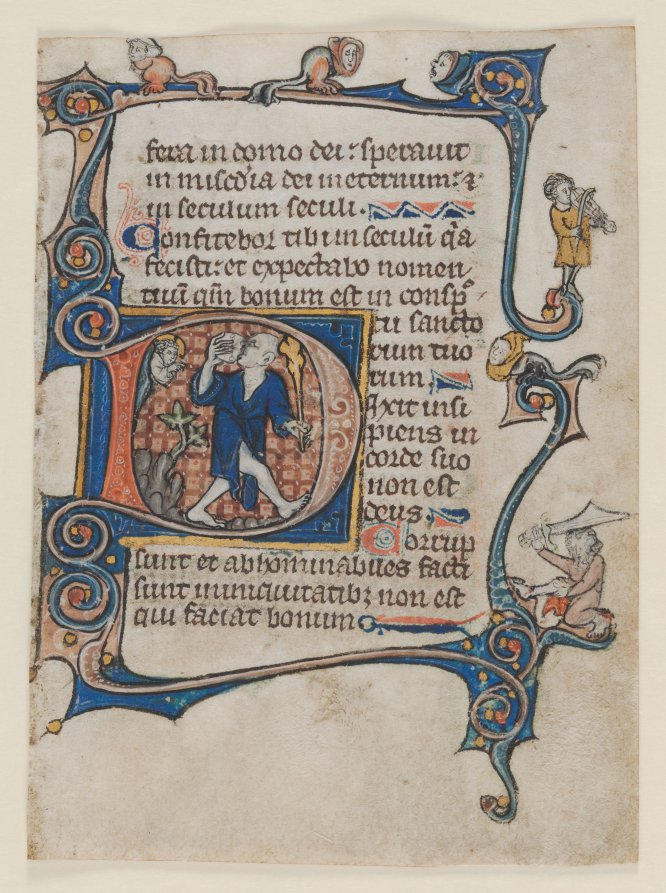 fera in domo dei : speravit
in miscd'ia dei in eternum : ⁊
in seculum seculi .
Confitebor tibi in seculū qia
fecisti : et expectabo nomen
tuū qm̄ bonum est in consp
tu sancto
rum tuo
rum .
Dixit insi
piens in
corde suo
non est
deus .
Corrup
sunt et abhominabiles facti
sunt non est
qui faciat bonum